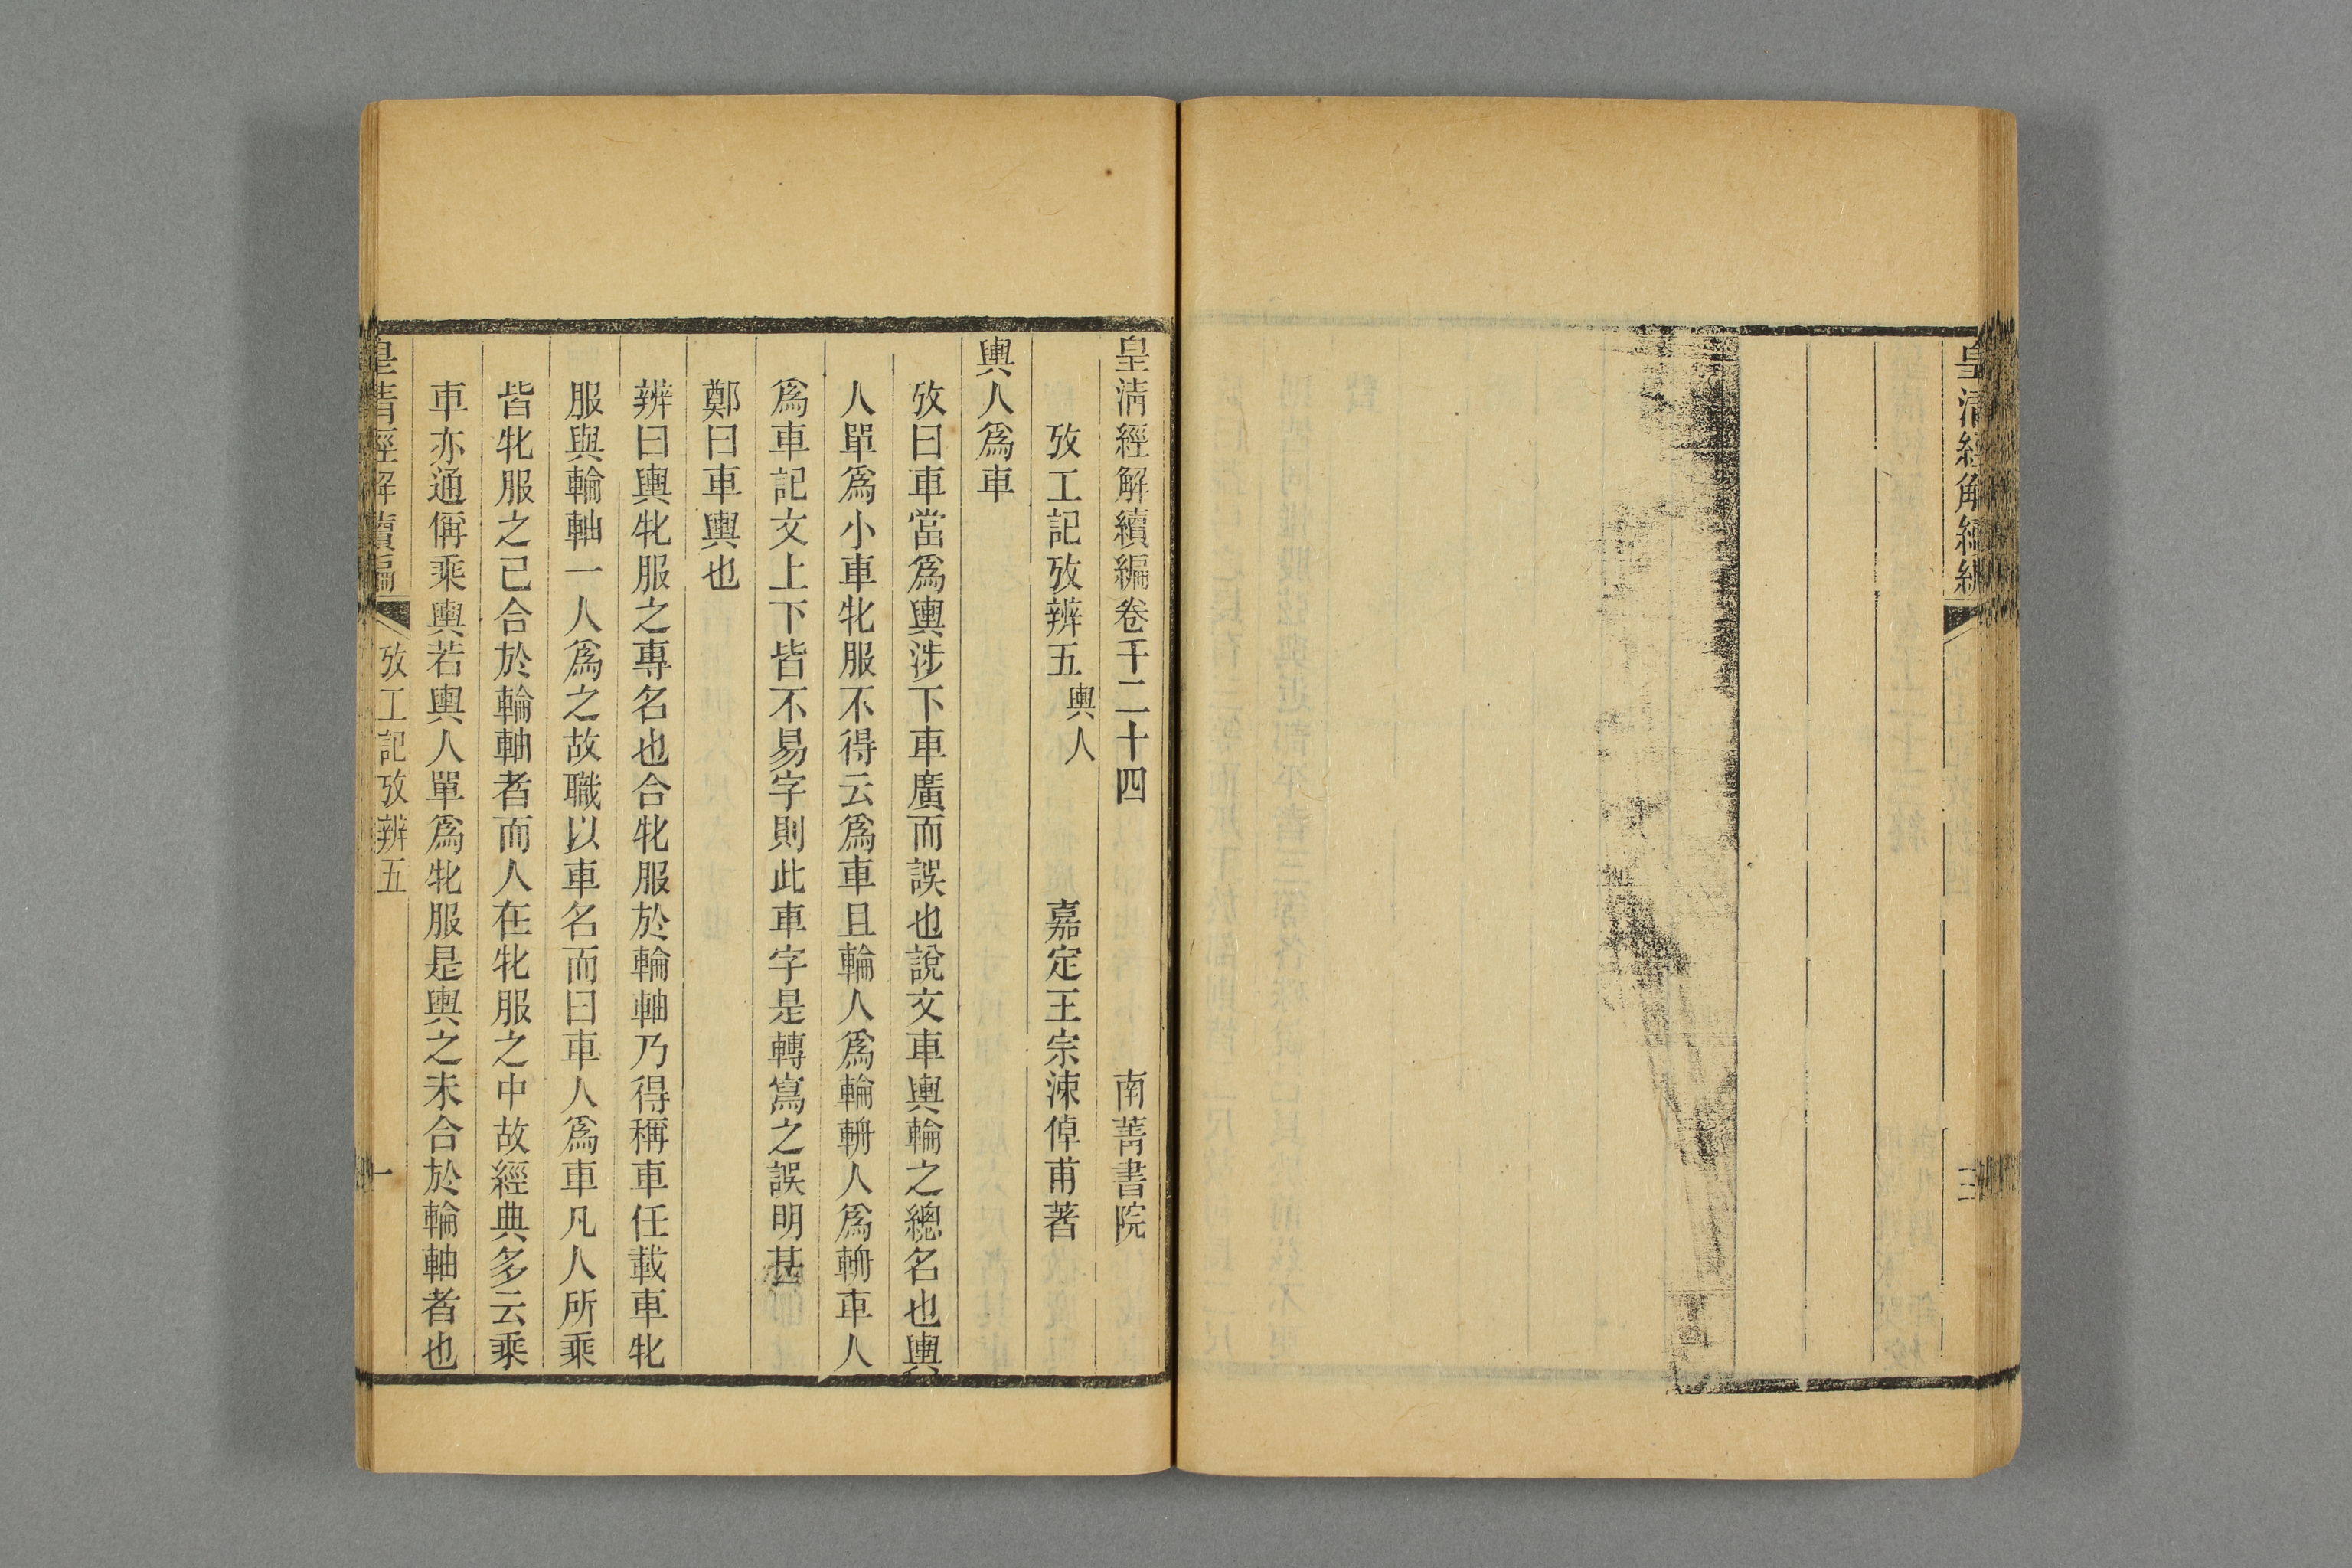 皇清經解續編
三
皇清經解續編卷千二十四 南菁書院
攷工記攷辨五 輿人 嘉定王宗涑倬甫著
輿人爲車
攷曰車當爲輿涉下車廣而誤也說文車輿輪之總名也輿
人單爲小車牝服不得云爲車且輪人爲輪輈人爲輈車人
爲車記文上下皆不易字則此車字是轉寫之誤明甚
鄭曰車輿也
辨曰輿牝服之專名也合牝服於輪軸乃得稱車任載車牝
服與輪軸一人爲之故職以車名而曰車人爲車凡人所乘
皆牝服之已合於輪軸者而人在牝服之中故經典多云乘
車亦通偁乘輿若輿人單爲牝服是輿之未合於輪軸者也
皇清經解續編 攷工記攷辨五 一